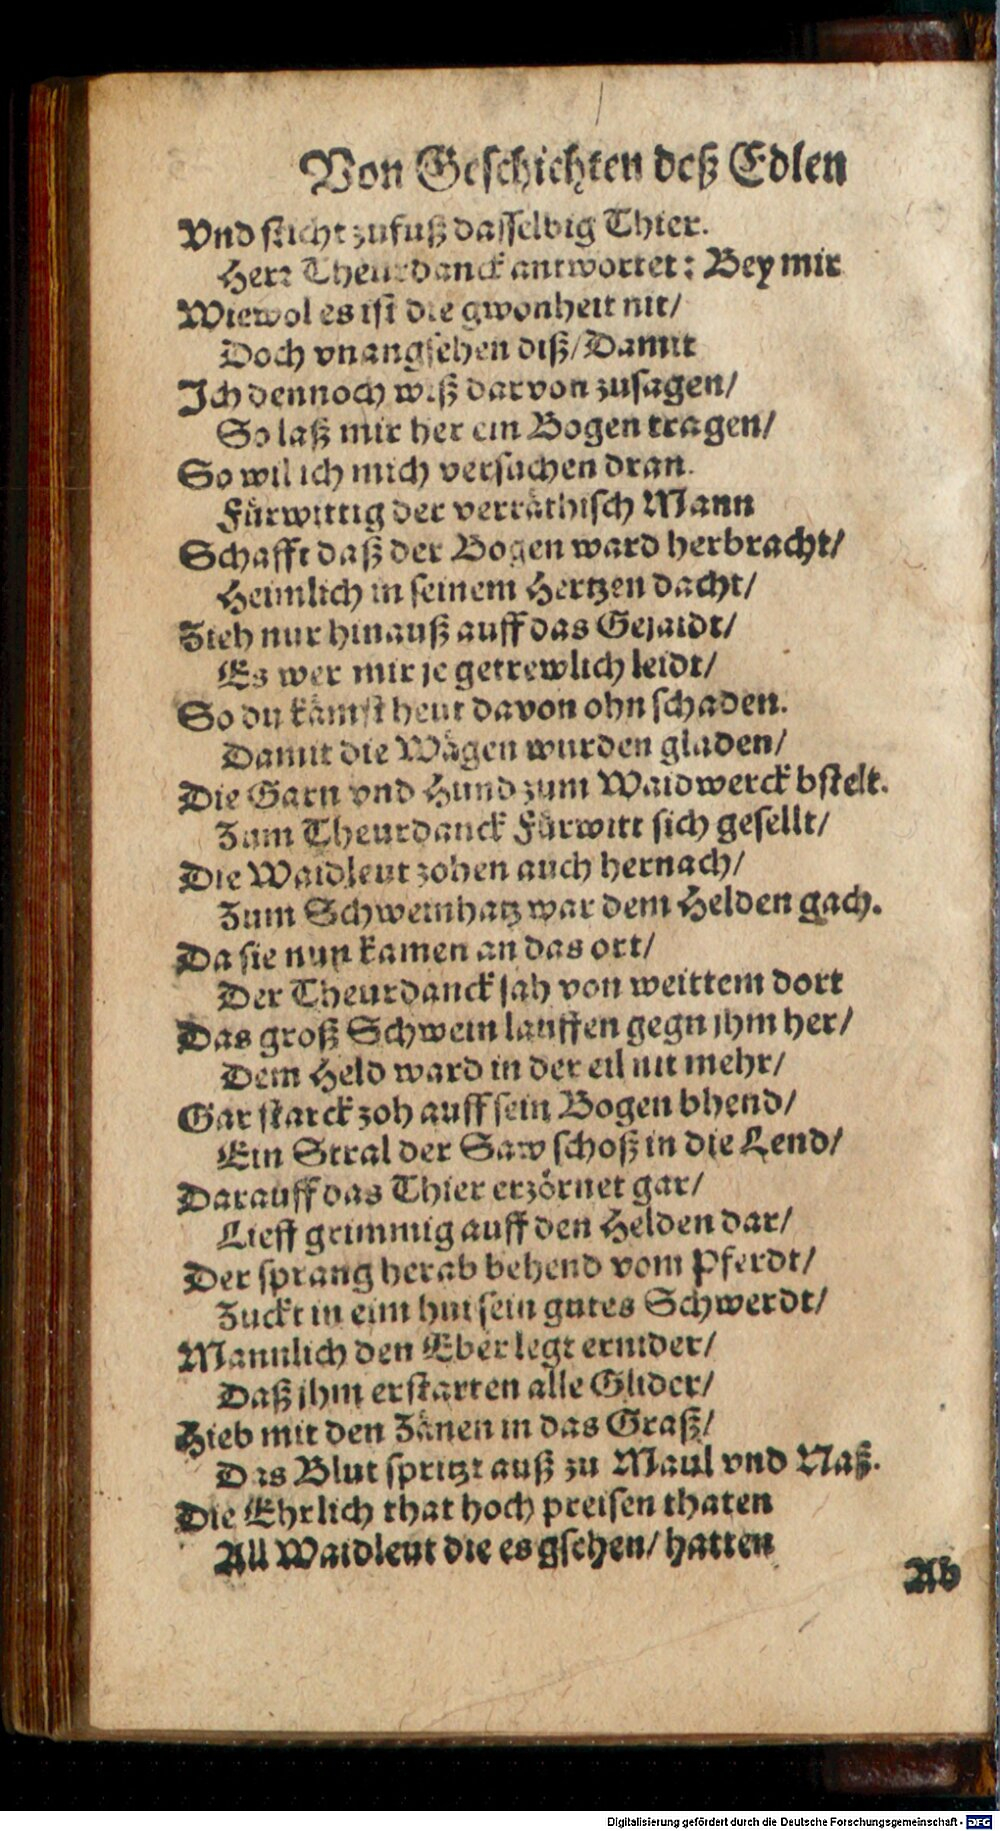 Von Geschichten deß Edlen
Vnd sticht zufuß dasselbig Thier.
Herr Theurdanck antwortet: Bey mir
Wiewol es ist die gwonheit nit/
Doch vnangsehen diß/ Damit
Ich dennoch wiß darvon zusagen/
So laß mir her ein Bogen tragen/
So wil ich mich versuchen dran.
Fürwittig der verräthisch Mann
Schafft daß der Bogen ward herbracht/
Heimlich in seinem Hertzen dacht/
Zieh nur hinauß auff das Gejaidt/
Es wer mir je getrewlich leidt/
So du kämst heut davon ohn schaden.
Damit die Wägen wurden gladen/
Die Garn vnd Hund zum Waidwerck bstelt.
Zum Theurdanck Fürwitt sich gesellt/
Die Waidleut zohen auch hernach/
Zum Schweinhatz war dem Helden gach.
Da sie nun kamen an das ort/
Der Theurdanck sah von weittem dort
Das groß Schwein lauffen gegn ihm her/
Dem Held ward in der eil nit mehr/
Gar starck zoh auff sein Bogen bhend/
Ein Stral der Saw schoß in die Lend/
Darauff das Thier erzörnet gar/
Lieff grimmig auff den Helden dar/
Der sprang herab behend vom Pferdt/
Zuckt in eim hui sein gutes Schwerdt/
Mannlich den Eber legt ernider/
Daß ihm erstarten alle Glider/
Hieb mit den Zänen in das Graß/
Das Blut spritzt auß zu Maul vnd Naß.
Die Ehrlich that hoch preisen thaten
All Waidleut die es gsehen/ hatten
Ab
Digitalisierung gefördert durch die Deutsche Forschungsgemeinschaft - DFG